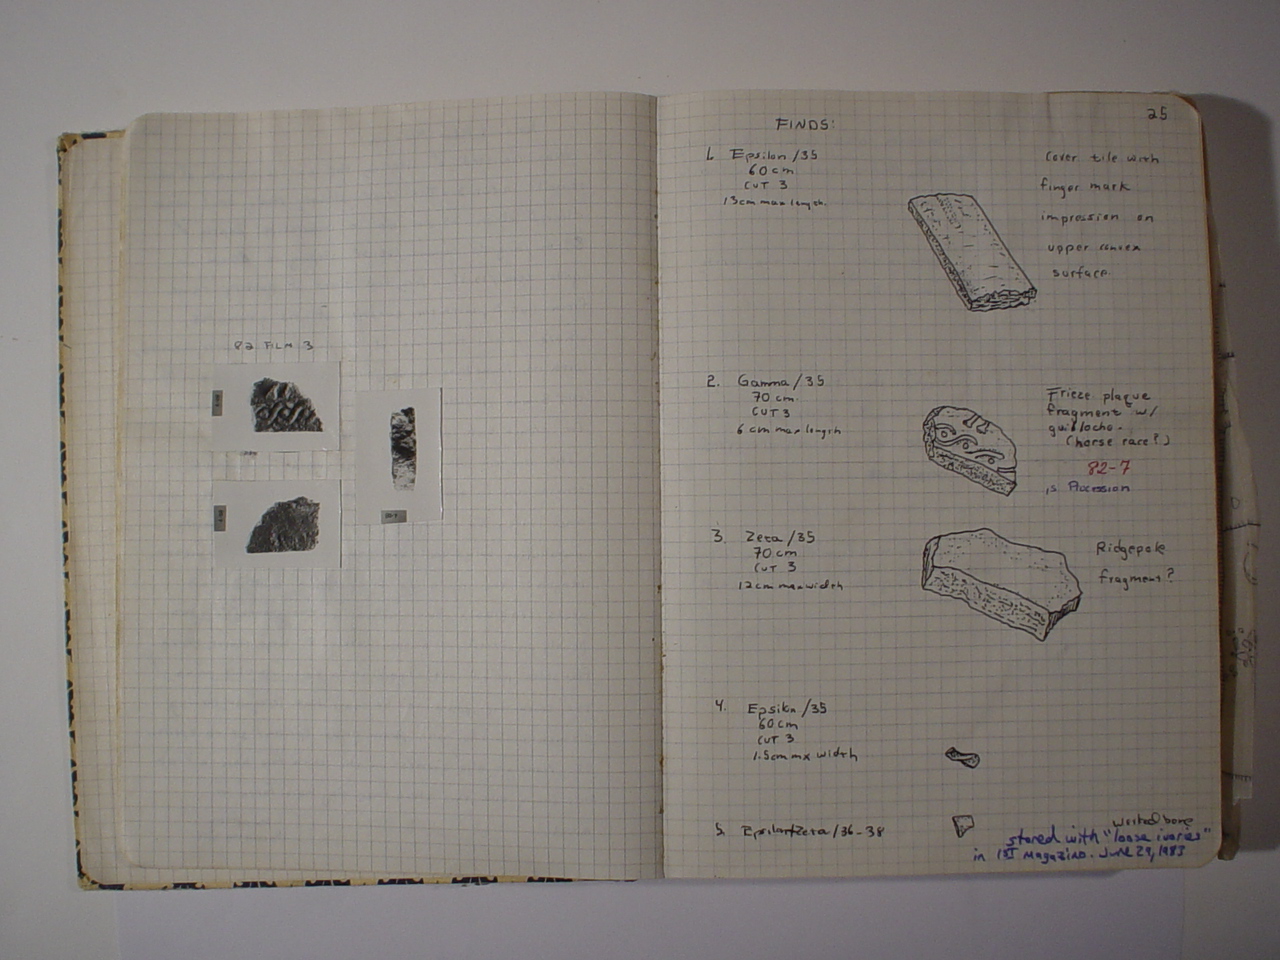 82 FILM 3
25
FINDS:
1. Epsilon/35
60 cm
CUT 3
13cm max length.
Cover tile with
finger mark
impression on
upper convex
surface.
2. Gamma/35
70 cm.
CUT 3
6 cm max length
Frieze plaque
fragment w/
guilloche.
(horse race?)
82-7
is Accession
3. Zeta/35
70 cm
CUT 3
12cm max width
Ridgepole
fragment?
4. Epsilon/35
60 cm
CUT 3
1.5cm mx width
5. Epsilon+Zeta/36-38
worked bone
stored with "loose ivories"
in 1st Magazino. June 29, 1983